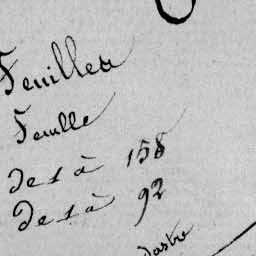 Feuilles
Feuille
De 1 à 158
De 1 à 92